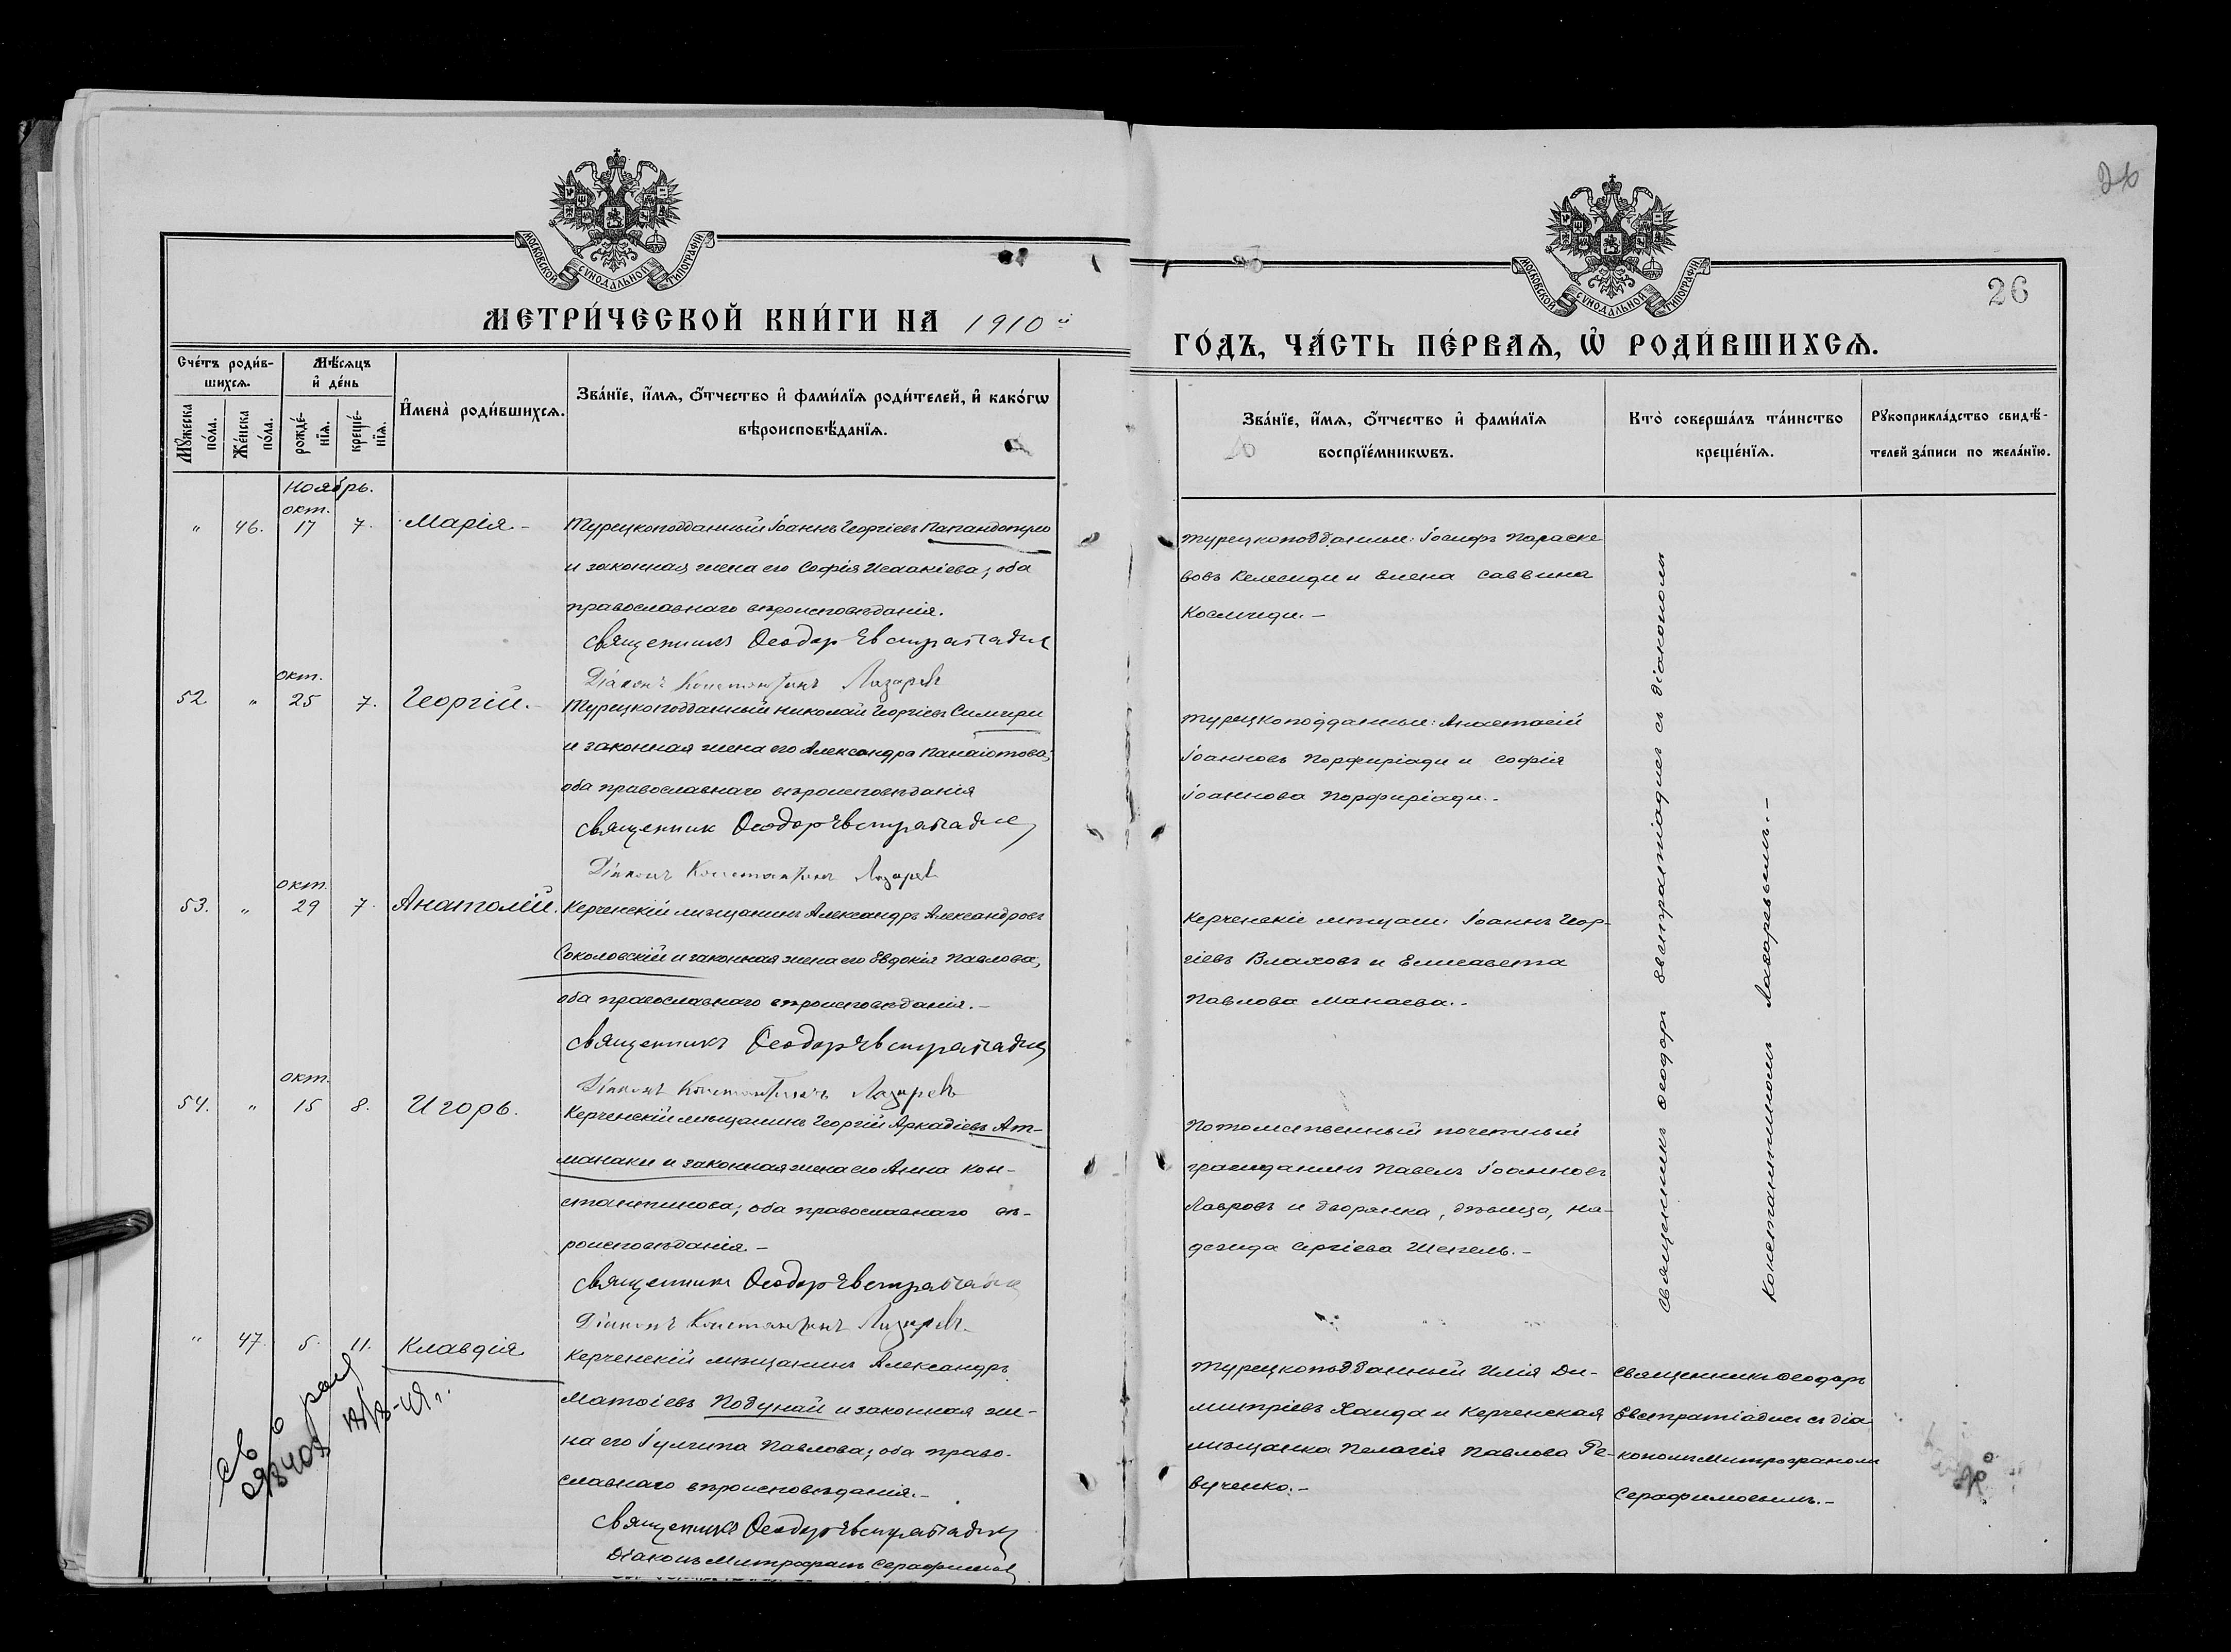 26
26
МОСКОВСКОЙ СѴНОДАЛЬНОЙ ТИПОГРАФІИ
МОСКОВСКОЙ СѴНОДАЛЬНОЙ ТИПОГРАФІИ
МЕТРИ́ЧЕСКОЙ КНИ́ГИ НА 1910 й
ГО́ДЪ, ЧА́СТЬ ПЕ́РВАѦ, Ѡ҆ РОДИ́ВШИХСѦ.
Сче́тъ роди́в-
шихсѧ.
Мꙋ́жеска по́ла.
Же́нска по́ла.
Мѣ́сѧцъ
и҆ де́нь
рожде́-
нїѧ.
креще́-
нїѧ.
И҆мена̀ роди́вшихсѧ.
Зва́нїе, и҆́мѧ, ѻ҆́тчество и҆ фами́лїѧ роди́телей, и҆ како́гѡ
вѣроисповѣ́данїѧ.
Зва́нїе, и҆́мѧ, ѻ҆́тчество и҆ фами́лїѧ
воспрїе́мникѡвъ.
Кто̀ соверша́лъ та́инство
креще́нїѧ.
Рꙋкоприкла́дство свидѣ́-
телей за́писи по жела́нїю.
Ноябрь.
окт.
" 46. 17 7. Марія.-
Турецкоподданный Іоаннъ Георгіевъ Папандопуло
и законная жена его Софія Исаакіева; оба
православнаго вѣроисповѣданія.
Священникъ Ѳеодор Евстратіадис
Діаконъ Константинъ Лазаревъ
турецкоподданные: Іосифъ Параске-
вовъ Келесиди и Елена Саввина
Космиди.-
окт.
52. " 25 7. Георгій.-
Турецкоподданный Николай Георгіевъ Симчери
и законная жена его Александра Панаіотова;
оба православнаго вѣроисповѣданія
Священник Ѳеодор Евстратіадис
Діаконъ Константинъ Лазаревъ
турецкоподданные: Анастасій
Іоанновъ Порфиріади и Софія
Іоаннова Порфиріади.-
окт.
53. " 29 7. Анатолій.
Керченскій мѣщанинъ Александръ Александровъ
Соколовскій и законная жена его Евдокія Павлова;
оба православнаго вѣроисповѣданія.-
Священникъ Ѳеодор Евстратіадис
Діаконъ Константинъ Лазаревъ
Керченскіе мѣщане: Іоаннъ Геор-
гіевъ Влаховъ и Елисавета
Павлова Манаева.-
окт.
54. " 15 8. Игорь.
Керченскій мѣщанинъ Георгій Аркадіевъ Ат-
манаки и законная жена его Анна Кон-
стантинова; оба православнаго вѣ-
роисповѣданія.-
Священникъ Ѳеодор Евстратіадис
Діаконъ Константинъ Лазаревъ.
Потомственный почетный
гражданинъ Павелъ Іоанновъ
Лавровъ и дворянка, дѣвица, На-
дежда Сергіева Шепель.-
Священникъ Ѳеодоръ Евстратіадисъ съ діакономъ
Константиномъ Лазаревымъ.-
" 47. 5. 11. Клавдія
Керченскій мѣщанинъ Александръ
Матѳіевъ Подунай и законная же-
на его Гулчина Павлова; оба право-
славнаго вѣроисповѣданія.-
Священникъ Ѳеодор Евстратіадис
Діаконъ Митрофанъ Серафимовъ
Турецкоподданный Илія Ди-
митріевъ Хаида и Керченская
мѣщанка Пелагія Павлова Ре-
вученко.-
Священникъ Ѳеодоръ
Евстратіадисъ съ діа-
кономъ Митрофаномъ
Серафимовымъ.-
св о